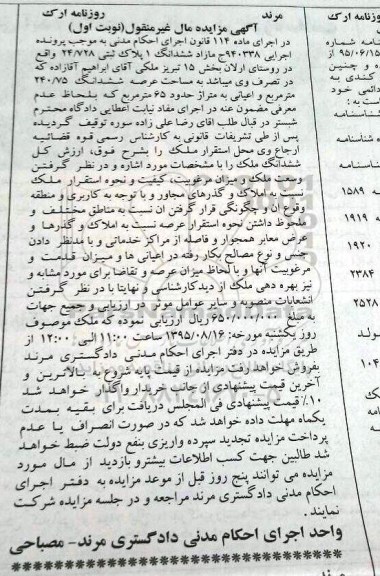 روزنامه ارک
مرند
روزنامه ارک
آگهی مزایده مال غیرمنقول(نوبت اول)
در اجرای ماده ۱۱۴ قانون اجرای احکام مدنی به موجب پرونده
اجرایی ۹۴۰۳۳۸ج مازاد ششدانگ ۱ پلاک ثبتی ۲۴/۷۲۸ واقع
در روستای ارلان بخش ۱۵ تبریز ملکی آقای ابراهیم آقازاده که
در تصرف وی میباشد به مساحت عرصه ششدانگ ۲۴۰/۷۵
مترمربع و اعیانی به متراژ حدود ۶۵ مترمربع که بلحاظ عدم
معرفی مضمون عنه در اجرای مفاد نیابت اعطایی دادگاه محترم
شبستر در قبال طلب آقای رضا علی زاده سوره توقیف گردیده
پس از طی تشریفات قانونی به کارشناس رسمی قوه قضائیه
ارجاع وی محل استقرار ملک را بشرح فوق، ارزش کل
ششدانگ ملک را با مشخصات مورد اشاره و در نظر گرفتن
وسعت ملک و میزان مرغوبیت، کیفیت و نحوه استقرار ملک
نسبت به املاک و گذرهای مجاور و با توجه به کاربری و منطقه
وقوع آن و چگونگی قرار گرفتن آن نسبت به مناطق مختلف و
ملحوظ داشتن نحوه استقرار عرصه نسبت به املاک و گذرها و
عرض معابر همجوار و فاصله از مراکز خدماتی و با مدنظر دادن
جنس و نوع مصالح بکار رفته در اعیانی ها و میزان قدمت و
مرغوبیت آنها و با لحاظ میزان عرصه و تقاضا برای مورد مشابه و
نیز بهره دهی ملک از دید کارشناسی و نهایتا با در نظر گرفتن
انشعابات منصوبه و سایر عوامل موثر در ارزیابی و جمیع جهات
به مبلغ ۶۵۰/۰۰۰/۰۰۰ ریال ارزیابی نموده که ملک موصوف
روز یکشنبه مورخه: ۱۳۹۵/۰۸/۱۶ ساعت ۱۱:۰۰ الی ۱۲:۰۰ از
طریق مزایده در دفتر اجرای احکام مدنی دادگستری مرند
بفروش خواهد رفت مزایده از قیمت پایه شروع به بالاترین و
آخرین قیمت پیشنهادی از جانب خریدار واگذار خواهد شد
۱۰٪ قیمت پیشنهادی فی المجلس دریافت برای بقیه بمدت
یکماه مهلت داده خواهد شد که در صورت انصراف یا عدم
پرداخت مزایده تجدید سپرده واریزی بنفع دولت ضبط خواهد
شد طالبین جهت کسب اطلاعات بیشتر و بازدید از مال مورد
مزایده می توانند پنج روز قبل از موعد مزایده به دفتر اجرای
احکام مدنی دادگستری مرند مراجعه و در جلسه مزایده شرکت
نمایند.
واحد اجرای احکام مدنی دادگستری مرند- مصباحی
نامه شماره
۹۵/۰۶/۱۵
ه و چنین
کندی به
دائمی خود
ست به :
شناسنامه
شناسنامه
ه ۱۵۸۹
ه ۱۹۱۹
۱۹۲۰
۲۳۸۴
۲۵۲۸